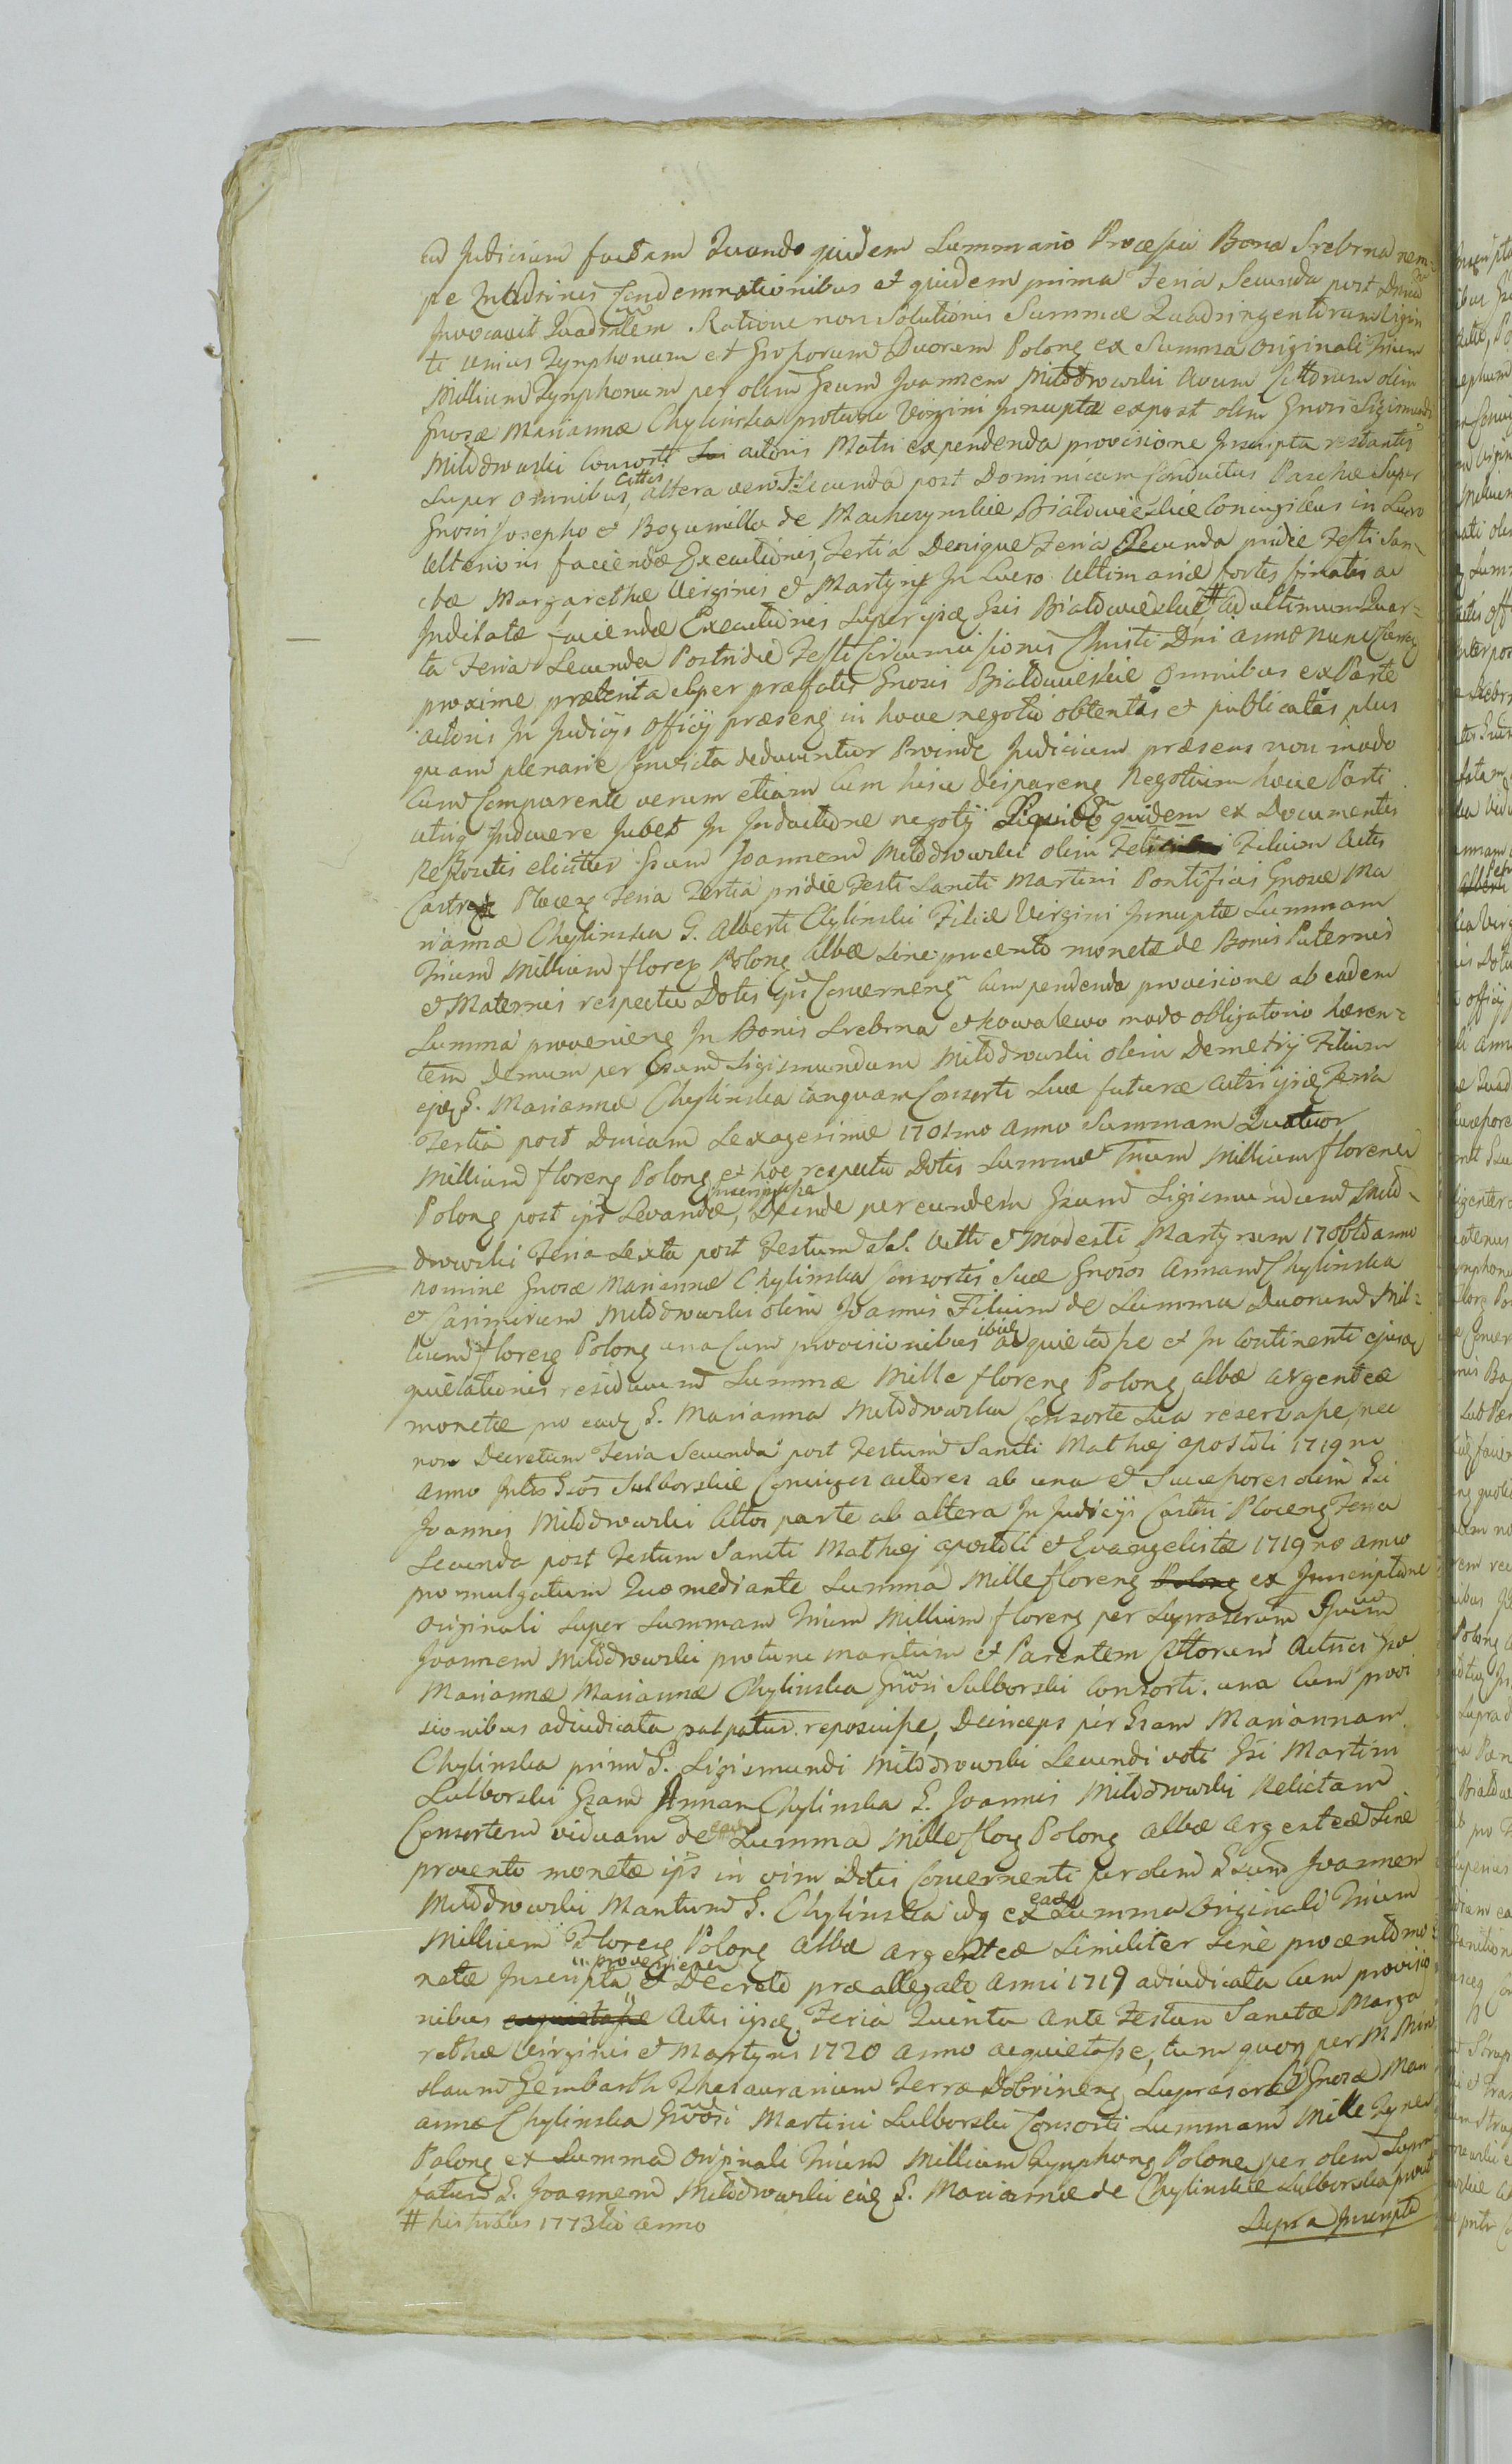 ad Judicium factam Quando quidem Summario Processu Bona Srebrna nem-
pe Condemnationibus et quidem prima Feria Secunda post Dnicā
Invocavit Quadrālem. Ratione non Solutionis Summæ Quadringentorum Vigin
ti unius Tynphonum et Grossorum Duorum Polong ex Summa Originali Trium
Millium Tynphonum per olim Gsum Joannem Miłodrowski Avum Cittorum olim
Gnosæ Mariannæ Chylinska protunc Virgini Innuptæ expost olim Gnosi Sigismundi
Miłodrowski Consorti actoris Matri expendenda provisione Inscripta restantis
Super Omnibus Cittis, altera vero Fr Secunda post Dominicam Conductus Paschæ Super
Gnosis Josepho et Bogumilla de Machczynskie Białowieskie Coniugibus in Lucro
Ulterioris faciendæ Executionis, Tertia Denique Feria Secunda pridie Festi San-
ctæ Margarethæ Virginis et Martyris In Lucro Ultimariæ fortis finalis ac
Inditatæ faciendæ Executionis Super ijsdē Gsis Białowieskie # ad ultimum Quar-
ta Feria Secunda Postridie Festi Circumcisionis Christi Dni anno nunc
proxime præterita Super præfatis Gnosis Białowieskie Omnibus ex Parte
actoris In Judicijs officij præseng in hocce negotio obtentis et publicatis plus
quam plenarie Convicta deducuntur Proinde Judicium præsens non modo
Cum Comparente verum etiam Cum hisce Dispareng Negotium hocce Parti
utrig Inducere Jubet In Inductione negotij Siquidē quidem ex Documentis
Repositis elicitur Gsum Joannem Miłodrowski olim Filium Actis
Castreng Ploceng Feria Tertia pridie Festi Sancti Martini Pontificis Gnosæ Ma
riannæ Chylinska G. Alberti Chylinski Filiæ Virgini Innuptæ Summam
Trium Millium floreg Polong albæ sine procento monetæ de Bonis Paternis
et Maternis respectu Dotis Concerneng cum pendenda provisione ab eadem
Summa provenieng In Bonis Srebrna et Kowalewo modo obligatorio hæren-
tem Demum per Gsum Sigismundum Miłodrowski olim Demetrij Filium
ejdg G. Mariannæ Chylinska tanquam Consorti Suæ futuræ Actis ijsdē Feria
Tertia post Dnicam Sexagesimæ 1701mo Anno Summam Quatuor
Millium floreng Polong et hoc respectu Dotis Summæ Trium Millium florenor
Polong post ips Levandæ, inscripsisse Deinde per eundem Gsum Sigismundum Miło-
drowski Feria Sexta post Festum SS. Viti et Modesti Martyrum 1706to anno
nomine Gnosæ Mariannæ Chylinska Consortis Suæ Gnosos Annam Chylinska
et Casimirum Miłodrowski olim Joannis Filium de Summa Duorum Mil-
lium floreng Polong una Cum provisionibus ibidē acquietasse et In Continenti ejusdē
quietationis residuum Summæ Mille floreng Polong albæ argenteæ
monetæ pro eadē G. Marianna Miłodrowska Consorte Sua reservasse, nec
non Decretum Feria Secunda post Festum Sancti Mathæj apostoli 1719no
Anno Inter Gsos Sulborskie Coniuges actores ab una et Successores olim Gsi
Joannis Miłodrowski Cittos parte ab altera In Judicijs Castri Ploceng Feria
Secunda post Festum Sancti Mathæj apostoli et Evangelistæ 1719no anno
promulgatum Quo mediante Summa Mille floreng Polong ex Inscriptione
Originali Super Summam Trium Millium floreng per Suprascrum Gsum
Joannem Miłodrowski protunc maritum et Parentem Cittorum Actrici Gso
Mariannæ Mariannæ Chylinska Gnosi Sulborski Consorti. una Cum provi
sionibus adiudicata reposuisse, Deinceps per Gsam Mariannam
Chylinska primi G. Sigismundi Miłodrowski Secundi voti Gsi Martini
Sulborski Gsam Annam Chylinska G. Joannis Miłodrowski Relictam
Consortem viduam de eadē Summa Mille flog Polong albæ argenteæ Sine
procento monetæ ips in vim Dotis Concernenti per olim Gsum Joannem
Miłodrowski Maritum G. Chylinska idg ex eadē Summa Originali Trium
Millium Floreng Polong albæ argenteæ Similiter Sine procento mo-
netæ Inscripta provenienen et Decreto præallegato Anni 1719 adiudicata Cum provisio
nibus acquietasse Actis ijsdē, Feria Quinta Ante Festum Sanctæ Marga
rethæ Virginis et Martyris 1720 anno acquietasse, tum quoq per M
slaum Gembarth Thesaurarium Terræ Dobrineng Suprascræ Gnosæ Mari
annæ Chylinska Gnosi Martini Sulborski Consorti Summam Mille Tynph
Polong ex Summa Originali Trium Millium Tynphong Polong per olim Supra
fatum G. Joannem Miłodrowski eidē G. Mariannæ de Chylinskie Sulborska prout
# 1773tio anno
Supra Inscripta